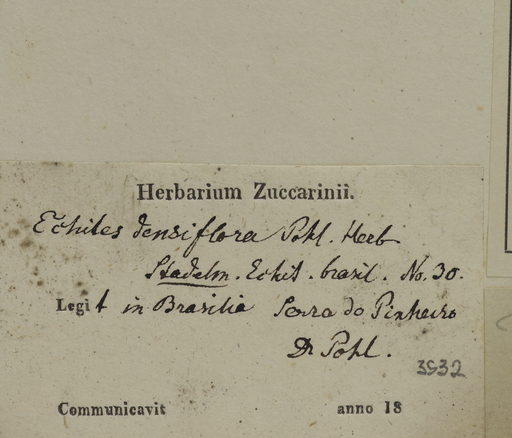 Herbarium Zuccarinii.
Echites densiflora Pohl. Herb
Stadelm. Echit. brasil. No. 30.
Legit in Brasilia Serra do Pinheiro
Dr Pohl.
3932
Communicavit anno 18